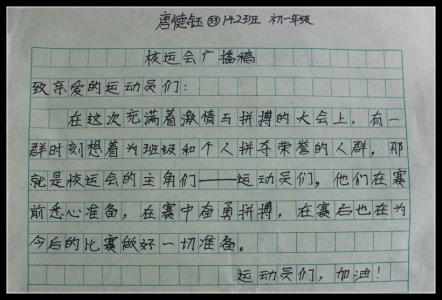 唐德钰 142班 初一年级
校运会广播稿
致亲爱的运动员们：
在这次充满着激情与拼搏的大会上，有一
群时刻想着为班级和个人拼夺荣誉的人群，那
就是校运会的主角们——运动员们，他们在赛
前悉心准备，在赛中奋勇拼搏，在赛后也在为
今后的比赛做好一切准备。
运动员们，加油！